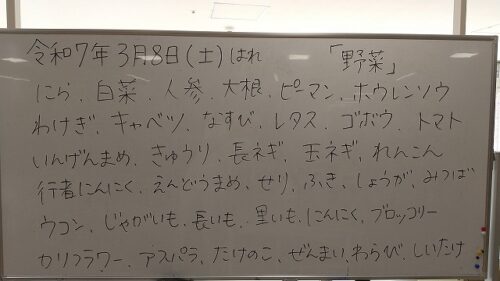 令和7年3月8日(土)はれ 「野菜」
にら、白菜、人参、大根、ピーマン、ホウレンソウ
わけぎ、キャベツ、なすび、レタス、ゴボウ、トマト
いんげんまめ、きゅうり、長ネギ、玉ネギ、れんこん
行者にんにく、えんどうまめ、せり、ふき、しょうが、みつば
ウコン、じゃがいも、長いも、里いも、にんにく、ブロッコリー
カリフラワー、アスパラ、たけのこ、ぜんまい、わらび、しいたけ